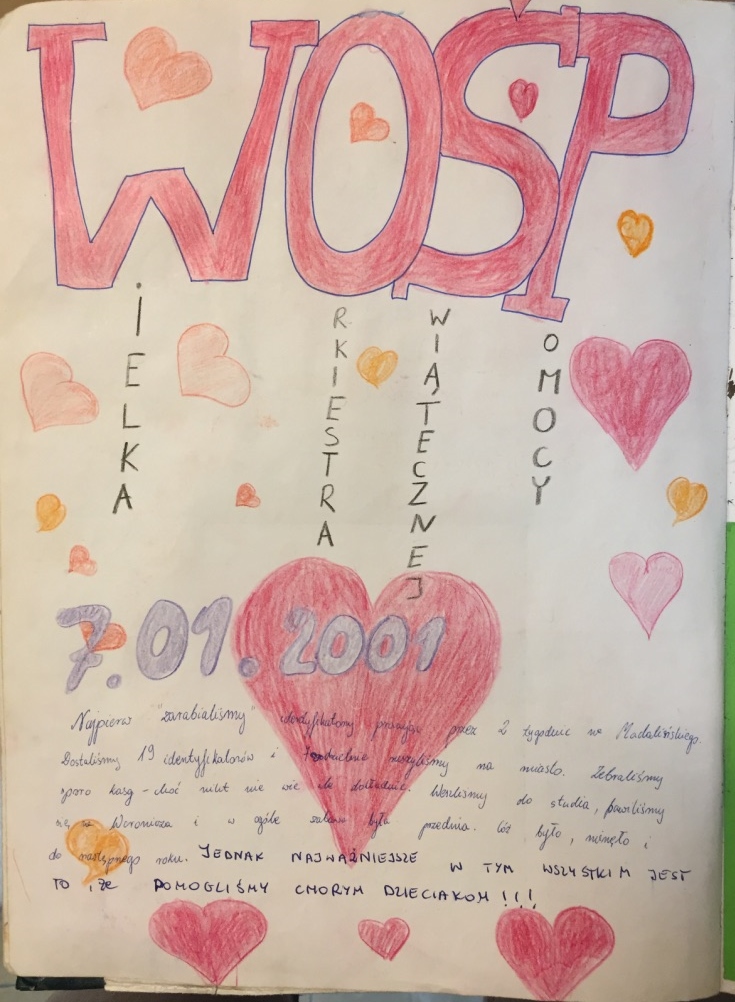 WOŚP
iELKA
RKIESTRA
WIĄTECZNEJ
OMOCY
7.01.2001
Najpierw "zarabialiśmy" identyfikatory pracując przez 2 tygodnie na Madalińskiego.
Dostaliśmy 19 identyfikatorów i ruszyliśmy na miasto. Zebraliśmy
sporo kasy - choć nikt nie wie ile dokładnie. Weszliśmy do studia, bawiliśmy
się na Woronicza i w ogóle zabawa była przednia. Cóż było, minęło i
do następnego roku. JEDNAK NAJWAŻNIEJSZE W TYM WSZYSTKIM JEST
TO, ŻE POMOGLIŚMY CHORYM DZIECIAKOM!!!